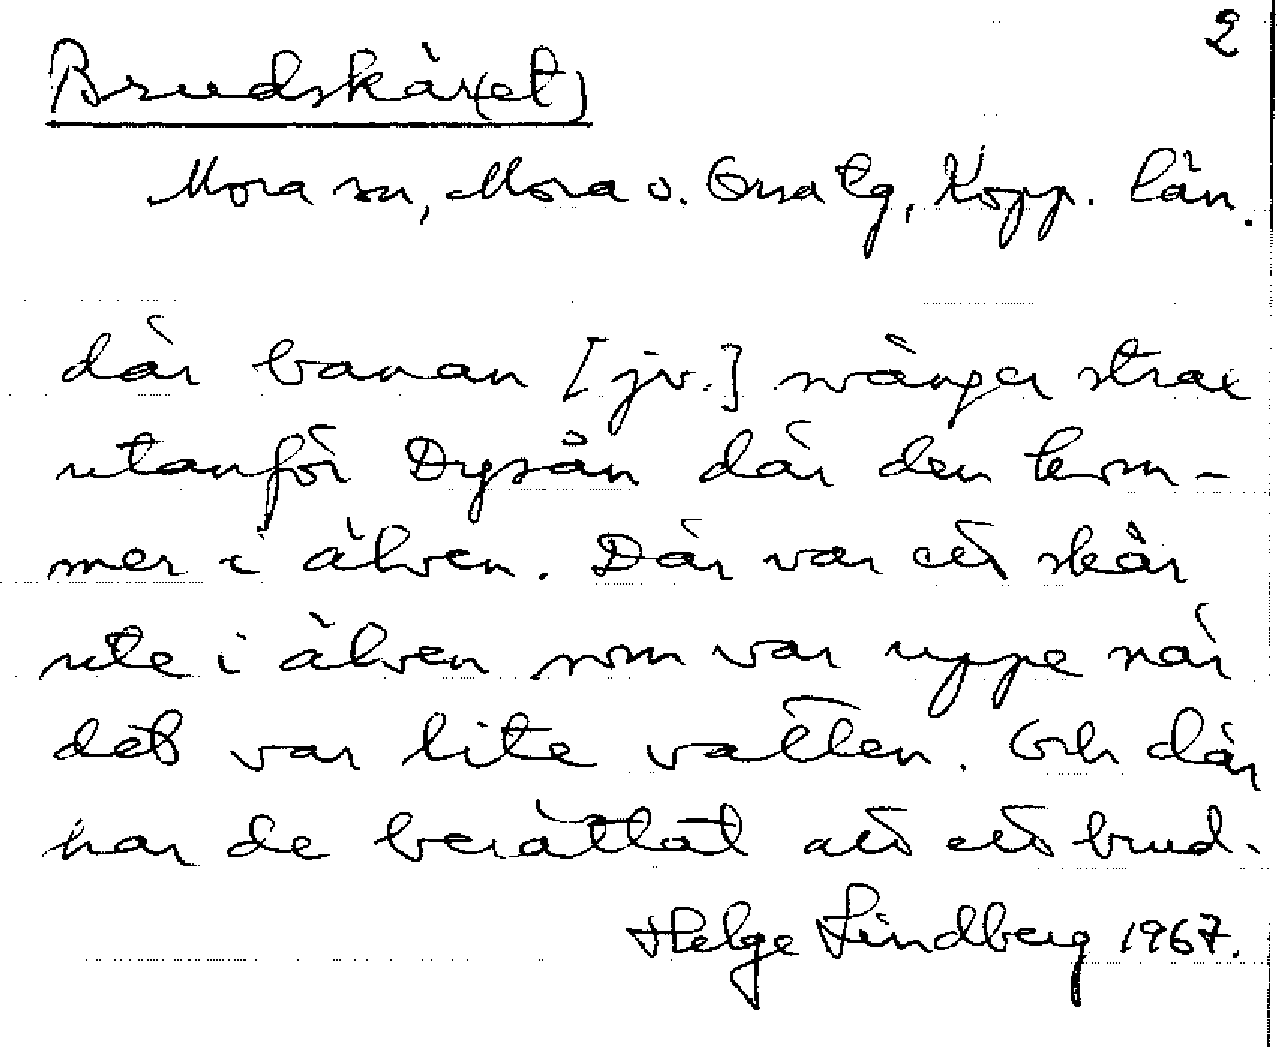 2
Brudskär(et)
Mora sn, Mora o. Orsa tg, Kopp. län.
där banan [jv.] svänger strax
utanför Dysån där den kom-
mer i älven. Där var ett skär
ute i älven som var uppe när
det var lite vatten. Och där
har de berättat att ett brud-
Helge Lindberg 1967.